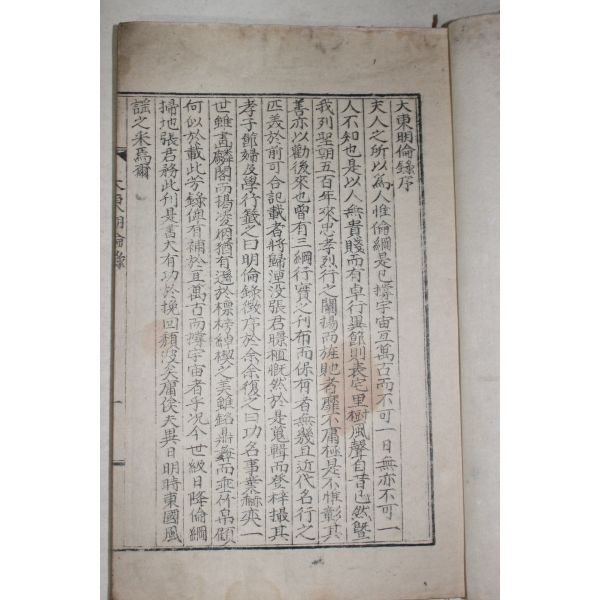 大東明倫錄序
夫人之所以為人惟倫綱是已撐宇宙亘萬古而不可一日無亦不可一
人不知也是以人無貴賤而有卓行異節則表宅里樹風聲自昔已然曁
我列聖朝五百年來忠孝烈行之闡揚而旌貤者靡不庸極是不惟彰其
善亦以勸後來也曾有三綱行實之刊布而保有者無幾且近代名行之
匹美於前可合記載者將歸湮没張君 慨然於是蒐輯而登梓撮其
孝子節婦及學行籖之曰明倫錄徵序於余余復之曰功名事業赫奕一
世雖畫麟閣而揭凌烟猶有遜於標榜綽楔之美雖銘鼎彜而垂竹帛顧
何似於載此芳錄俾有補於亘萬古而撐宇宙者乎况今世級日降倫綱
掃地張君務此刊是書大有功於挽回頹波矣庸俟夫異日明時東國風
謡之采焉爾
大東明倫錄
一